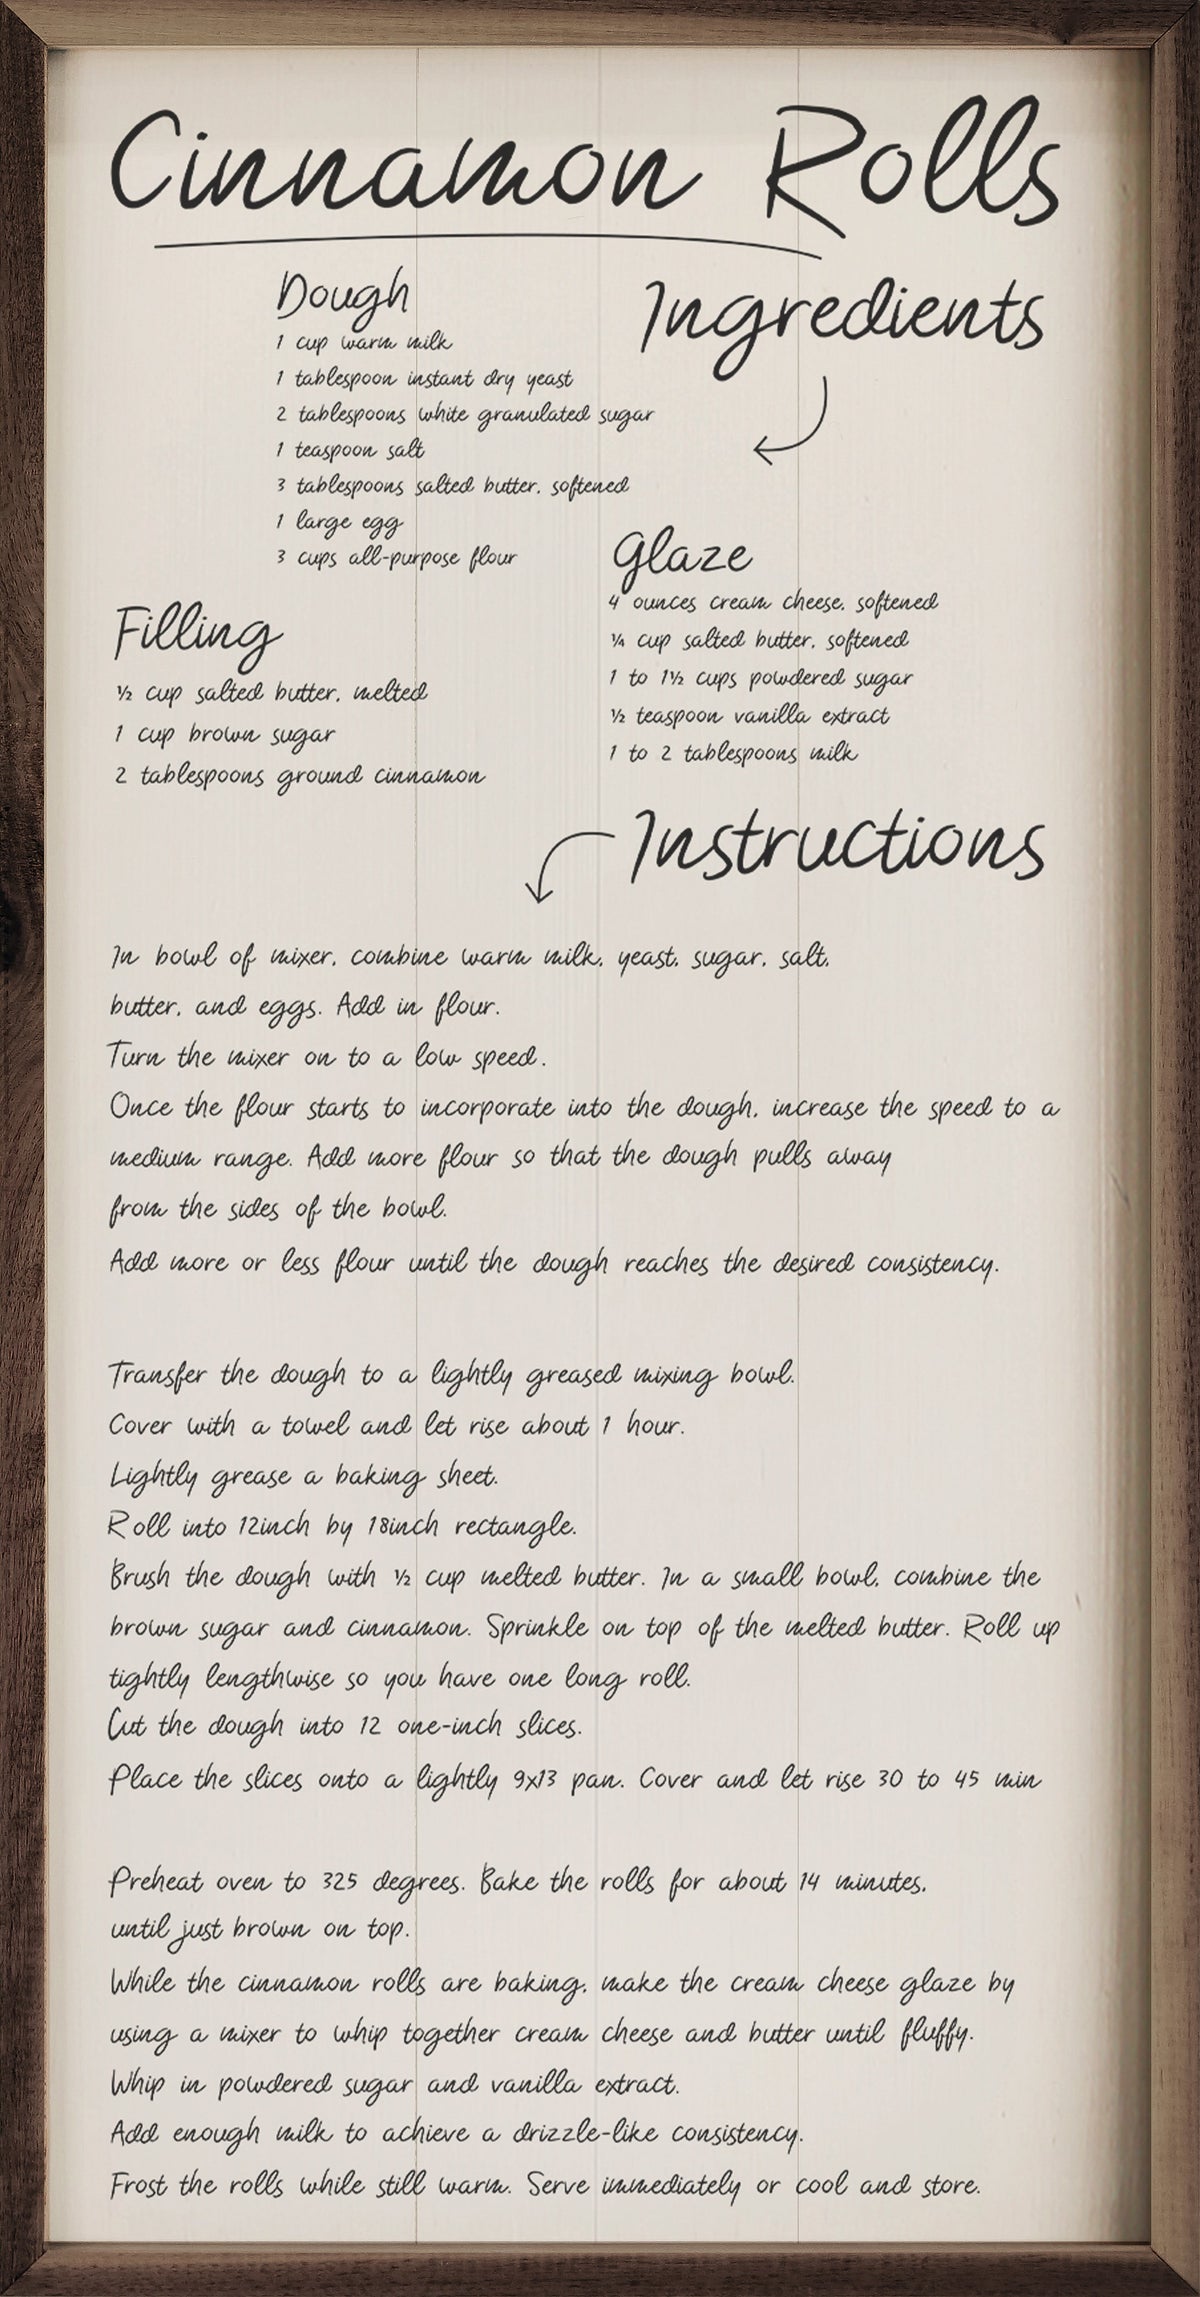 Cinnamon Rolls
Ingredients
Dough
1 cup warm milk
1 tablespoon instant dry yeast
2 tablespoons white granulated sugar
1 teaspoon salt
3 tablespoons salted butter, softened
1 large egg
3 cups all-purpose flour
Filling
½ cup salted butter, melted
1 cup brown sugar
2 tablespoons ground cinnamon
Glaze
4 ounces cream cheese, softened
¼ cup salted butter, softened
1 to 1½ cups powdered sugar
½ teaspoon vanilla extract
1 to 2 tablespoons milk
Instructions
In bowl of mixer, combine warm milk, yeast, sugar, salt,
butter, and eggs. Add in flour.
Turn the mixer on to a low speed.
Once the flour starts to incorporate into the dough, increase the speed to a
medium range. Add more flour so that the dough pulls away
from the sides of the bowl.
Add more or less flour until the dough reaches the desired consistency.
Transfer the dough to a lightly greased mixing bowl.
Cover with a towel and let rise about 1 hour.
Lightly grease a baking sheet.
Roll into 12inch by 18inch rectangle.
Brush the dough with ½ cup melted butter. In a small bowl, combine the
brown sugar and cinnamon. Sprinkle on top of the melted butter. Roll up
tightly lengthwise so you have one long roll.
Cut the dough into 12 one-inch slices.
Place the slices onto a lightly 9x13 pan. Cover and let rise 30 to 45 min
Preheat oven to 325 degrees. Bake the rolls for about 14 minutes,
until just brown on top.
While the cinnamon rolls are baking, make the cream cheese glaze by
using a mixer to whip together cream cheese and butter until fluffy.
Whip in powdered sugar and vanilla extract.
Add enough milk to achieve a drizzle-like consistency.
Frost the rolls while still warm. Serve immediately or cool and store.